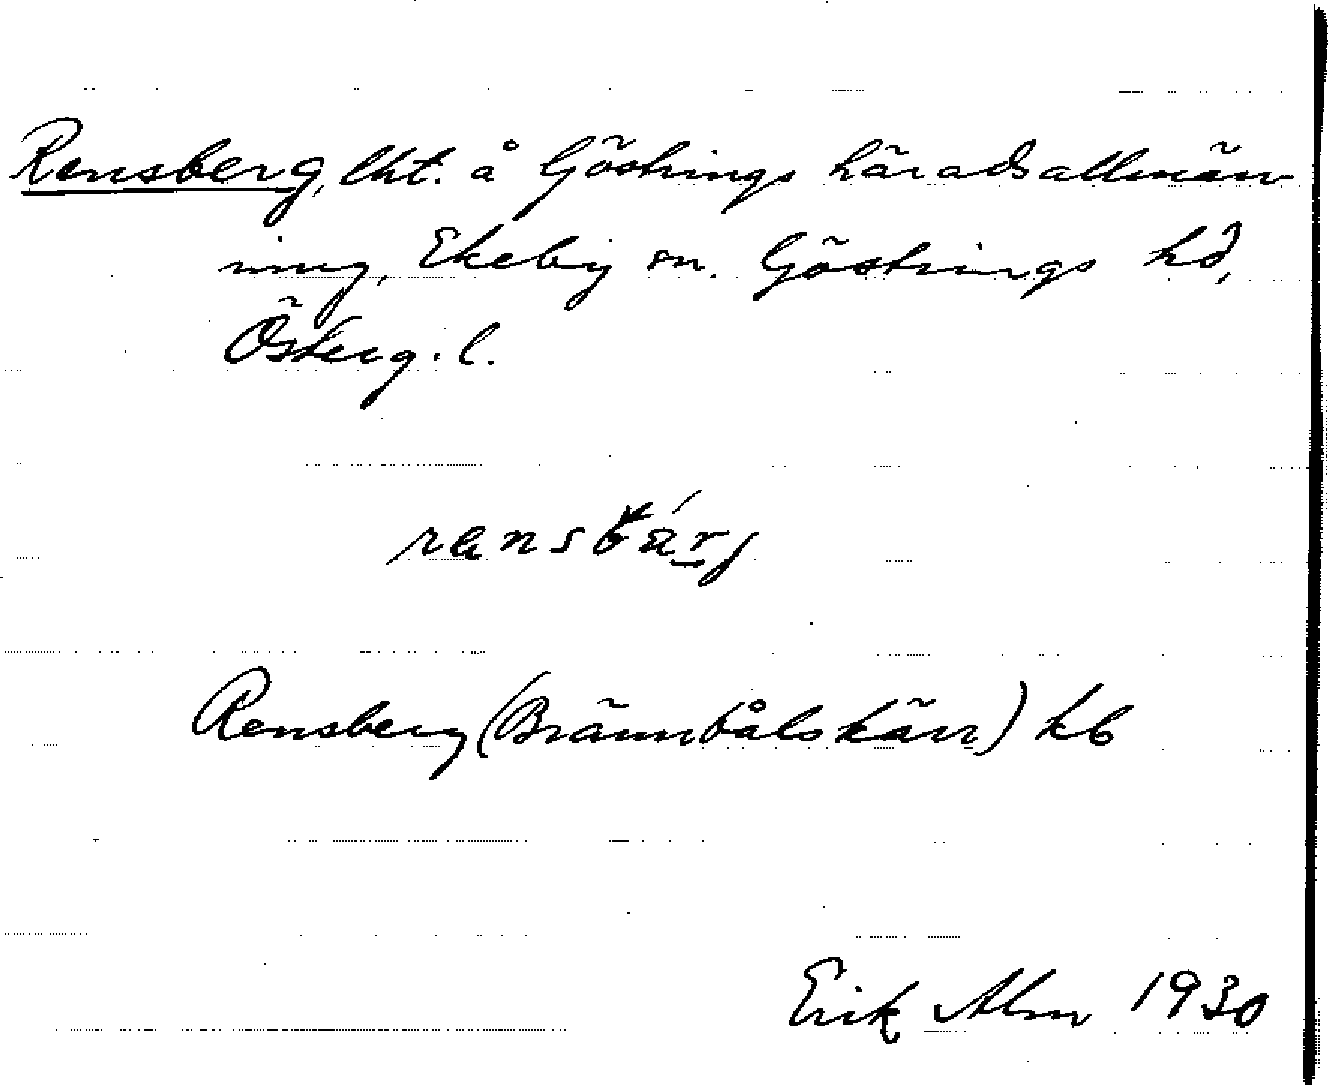 Rensberg, lht. å Göstrings häradsallmän
ning, Ekeby sn. Göstrings hd,
Österg. l.
Rensberg (Brännbålskärr) kb
Erik Alm 1930